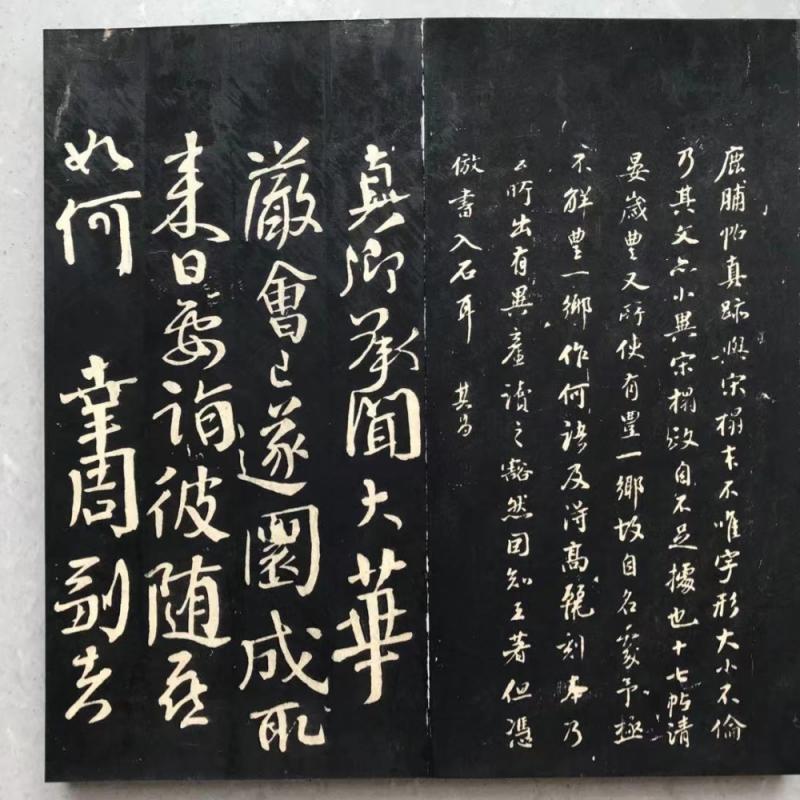 鹿脯帖真跡與宋搨本不唯字形大小不倫
乃其文亦小異宋搨殘自不足據也十七帖請
晏歲豐又所使有豐一鄉故自名處予極
不解豐一鄉作何語及得高麗刻本乃
所出有異產讀之豁然因知王著但憑
倣書入石耳 其昌
真卿承聞大華
嚴會已遂圓成取
來日要詢彼隨喜
如何 幸周副老